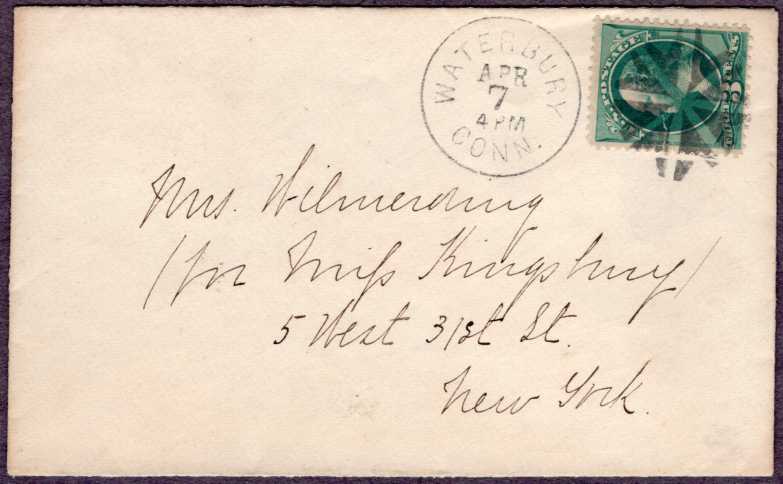 WATERBURY
APR
7
4 PM
CONN.
POSTAGE
3
Mrs. Wilmerding
(for Miss Kingsbury)
5 West 31st St.
New York.